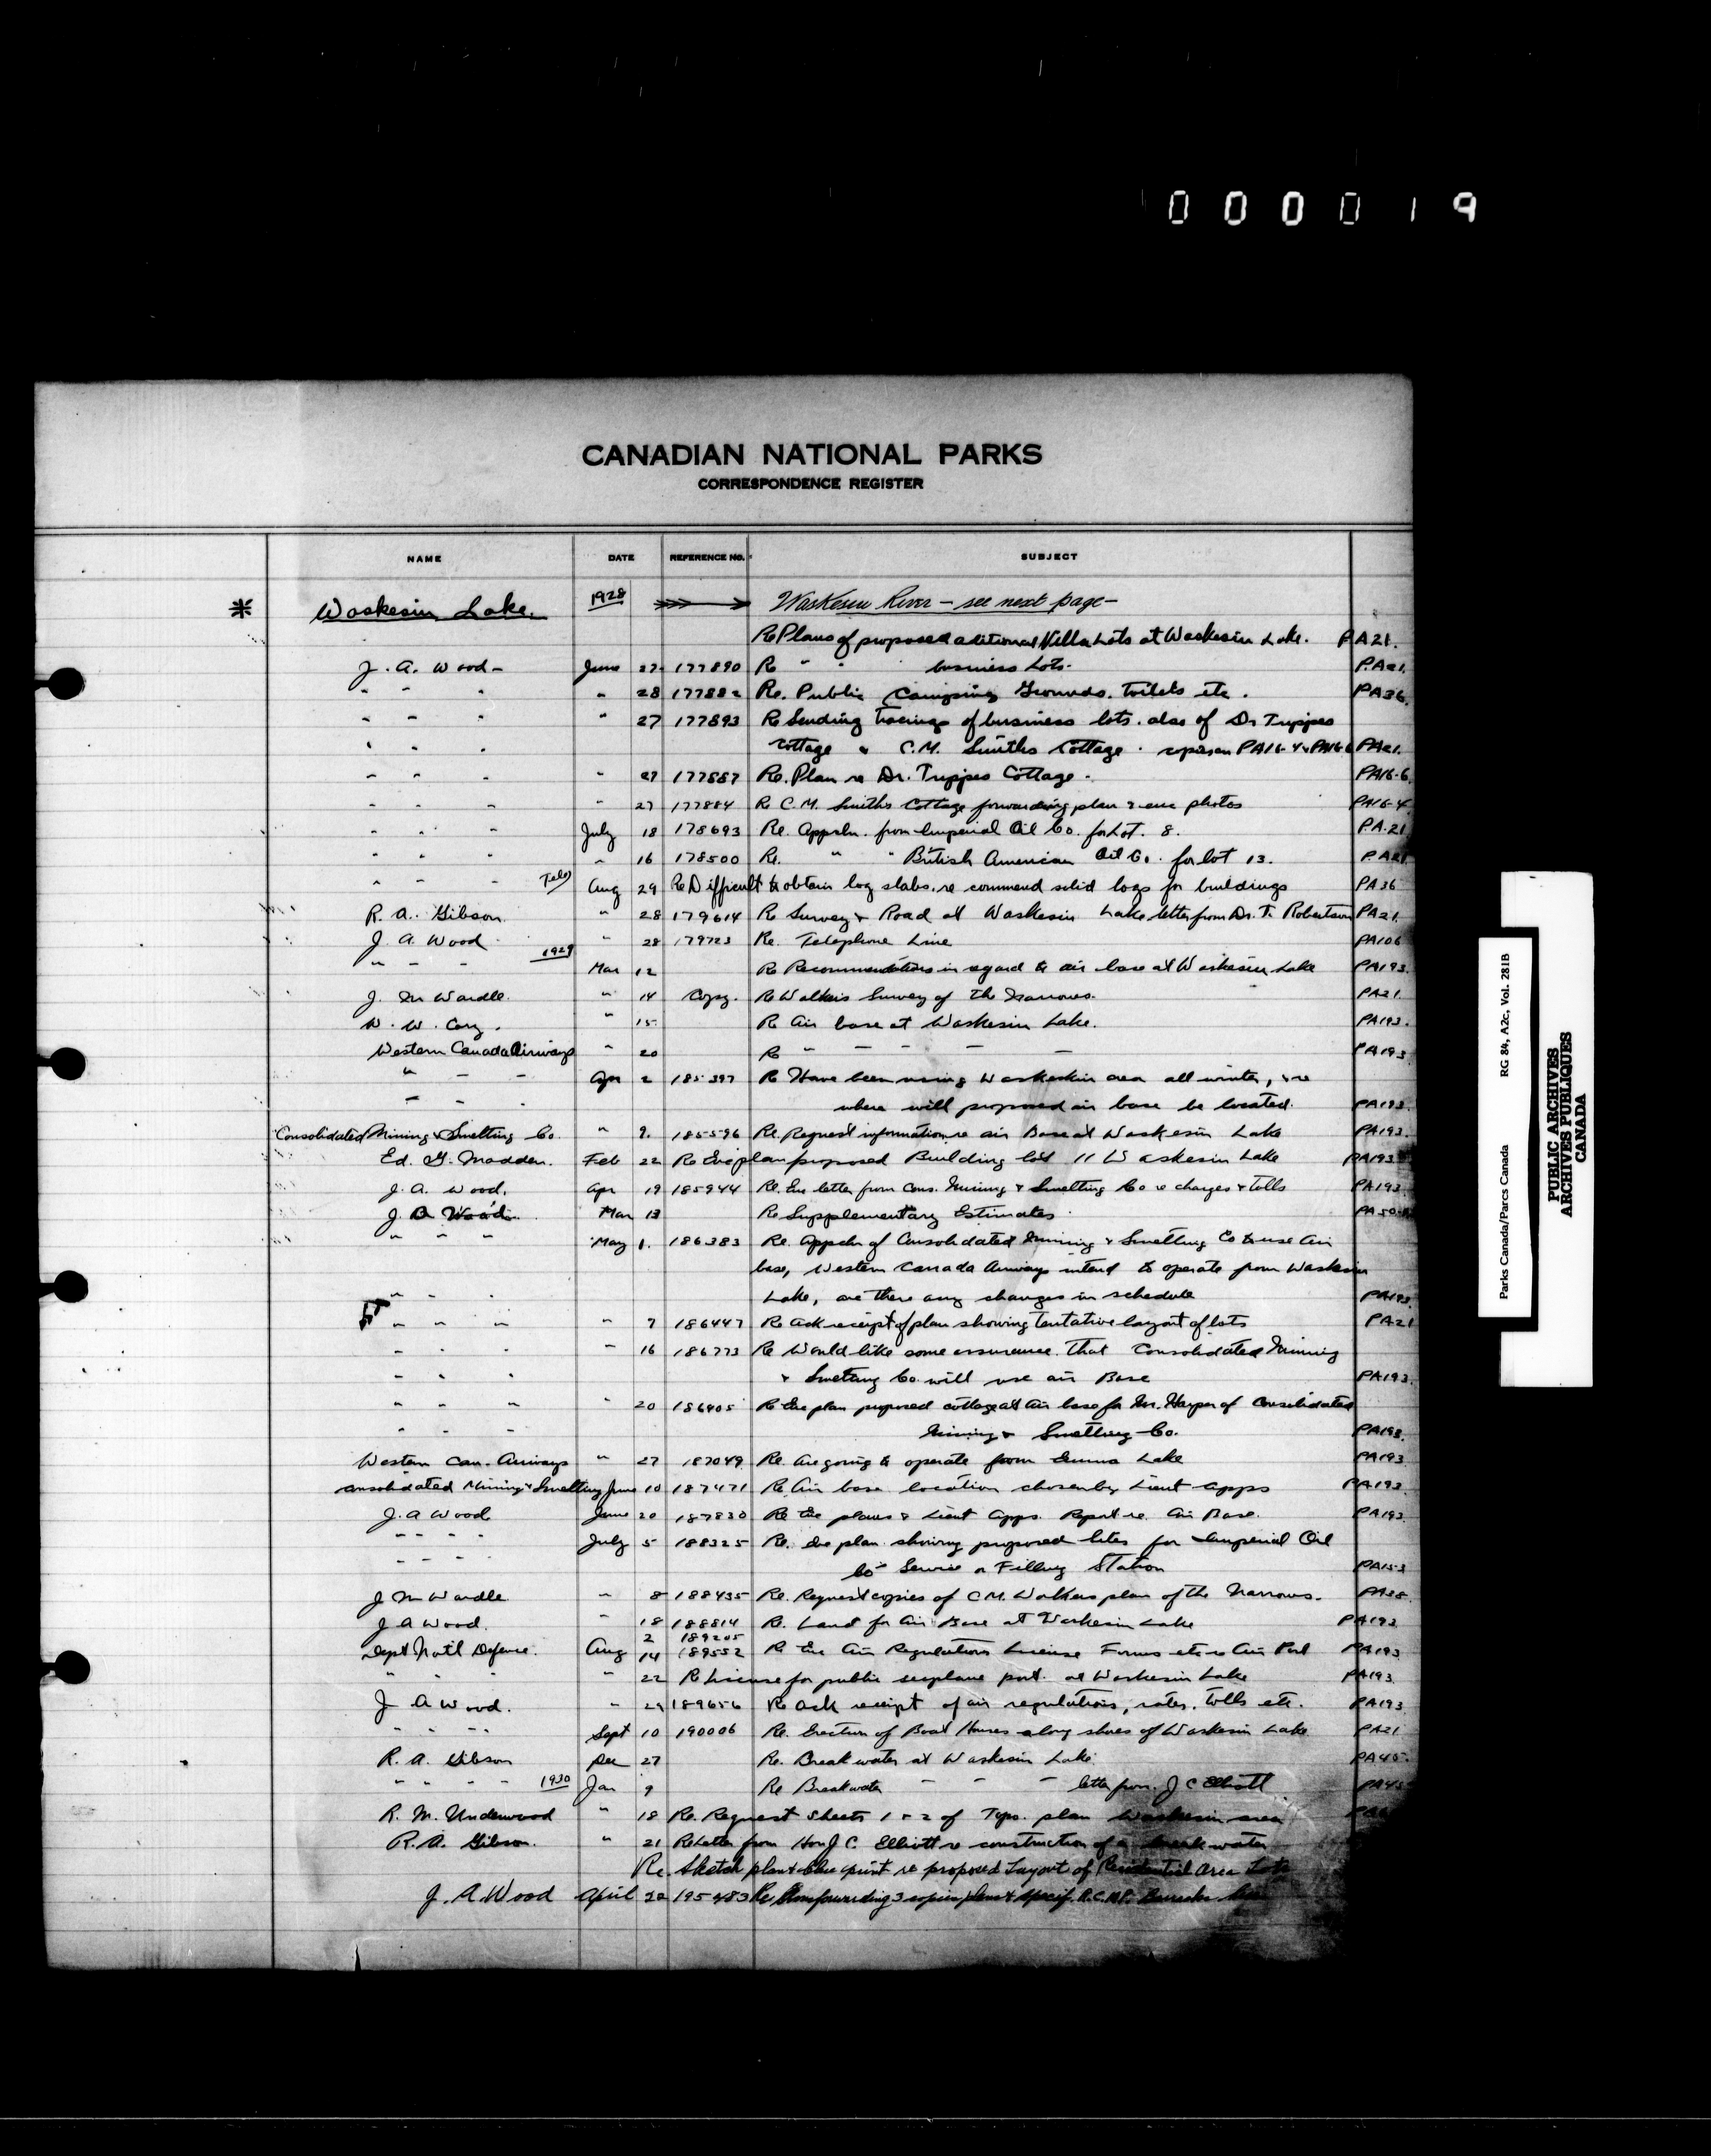 000019
CANADIAN NATIONAL PARKS
CORRESPONDENCE REGISTER
NAME DATE REFERENCE NO. SUBJECT
* Waskesiu Lake. 1928 Waskesiu River - see next page -
Re Plans of proposed aditional Villa Lots at Waskesiu Lake. PA21.
J. A. Wood - June 27 177890 Re " " business Lots. P.A21.
" " " " 28 177882 Re. Public Camping Grounds. Toilets etc. PA36.
" " " " 27 177893 Re Sending tracings of business lots. also of Dr Trippes
" " " Cottage " C.M. Smiths Cottage. PA16-4 & PA16-6 PA21.
" " " " 27 177887 Re. Plan re Dr. Trippes Cottage. PA16-6.
" " " " 27 177884 Re C.M. Smiths Cottage forwarding plan & enc photos PA16-4
" " " July 18 178693 Re. Appcln. from Imperial Oil Co. for Lot. 8. P.A.21
" " " " 16 178500 Re. " " British American Oil Co. for lot 13. P.A21
" " " Aug 29 Re Difficult to obtain log slabs. recommend solid logs for buildings PA36
R. A. Gibson. " 28 179614 Re Survey & Road at Waskesiu Lake letter from Dr. T. Robertson PA21.
J. A. Wood " 28 179723 Re. Telephone Line PA106
" " " 1929 Mar 12 Re Recommendations in regard to air base at Waskesiu Lake PA193.
J. M Wardle. " 14 Copy. Re Walkers Survey of the Narrows. PA21.
W. W. Cory. " 15. Re Air base at Waskesiu Lake. PA193.
Western Canada Airways " 20 Re " " " " PA193
" " " Apr 2 185397 Re Have been using Waskeskiu area all winter, & re
" " " where will proposed air base be located. PA193.
Consolidated Mining & Smelting Co. " 9. 185596 Re. Request information re air Base at Waskesiu Lake PA193.
Ed. G. Madden. Feb 22 Re Enc plan proposed Building lot 11 Waskesiu Lake PA193
J. A. Wood. Apr 19 185944 Re. Enc letter from Cons. Mining & Smelting Co re charges & tolls PA193.
J. A Wood. Mar 13 Re Supplementary Estimates.
" " " May 1. 186383 Re. Appcln of Consolidated Mining & Smelting Co to use Air
base, Western Canada Airways intend to operate from Waskesiu
" " " Lake, are there any changes in schedule PA193.
" " " " 7 186447 Re Ack receipt of plan showing tentative layout of lots PA21
" " " " 16 186773 Re Would like some assurance. That Consolidated Mining
" " " & Smelting Co. will use air Base PA193.
" " " " 20 186405 Re Enc plan proposed cottage at Air base for Mr. Harper of Consolidated
" " " Mining & Smelting Co. PA193.
Western Can. Airways " 27 187049 Re. Are going to operate from Emma Lake PA193
Consolidated Mining & Smelting June 10 187471 Re. Air base location chosen by Lieut Apps PA193.
J. A Wood June 20 187830 Re Enc plans & Lieut Apps. Report re. Air Base. PA193.
" " " " July 5 188325 Re. Enc plan. showing proposed sites for Imperial Oil
" " " " Co's Service or Filling Station PA15-3
J M Wardle " 8 188435 Re. Request copies of C.M. Walkers plan of the Narrows.
J A Wood. " 18 188814 Re. Land for Air Base at Waskesiu Lake PA193
2 189205
Dept Natl Defence. Aug 14 189552 Re Enc Air Regulations License Forms etc re Air Port PA193
" " " " 22 Re License for public seaplane port. at Waskesiu Lake PA193.
J A Wood. " 29 189656 Re Ack receipt of air regulations, rates, tolls etc. PA193
" " " Sept 10 190006 Re. Erection of Boat Houses along shores of Waskesiu Lake PA21
R. A. Gibson Dec 27 Re. Breakwater at Waskesiu Lake PA45.
" " " " 1930 Jan 9 Re Breakwater " " " letter from. J C Elliott PA45
R. M. Underwood " 18 Re. Request Sheets 1 & 2 of Topo. plan Waskesiu area
R. A. Gibson. " 21 Re Letter from Hon J C. Elliott re construction of a breakwater
Re. Sketch plan & blue print re proposed Layout of Residential Area Lots
J. A. Wood April 22 195483 Re forwarding 3 copies plans & specif. R.C.M.P. Barracks
Parks Canada/Parcs Canada RG 84, A2c, Vol. 281B
PUBLIC ARCHIVES
ARCHIVES PUBLIQUES
CANADA